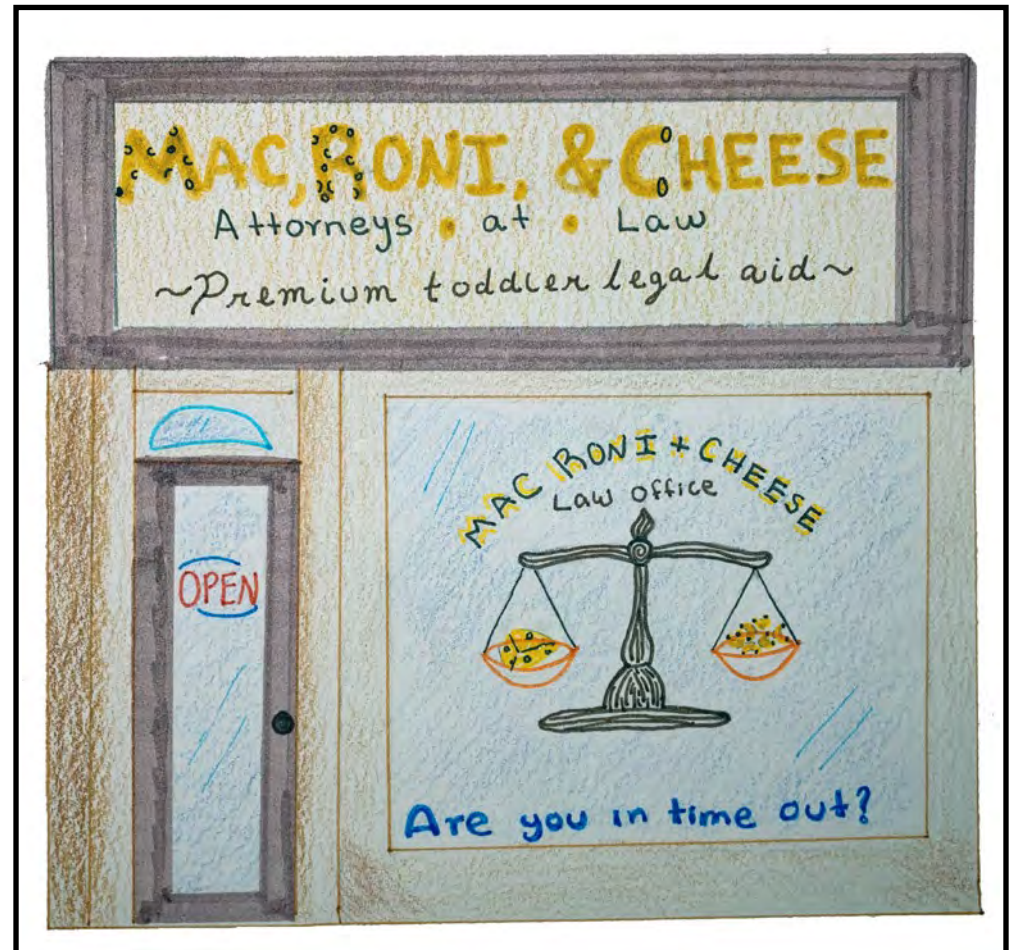 MAC, RONI, & CHEESE
Attorneys • at • Law
~Premium toddler legal aid~
MAC RONI + CHEESE
Law office
OPEN
Are you in time out?